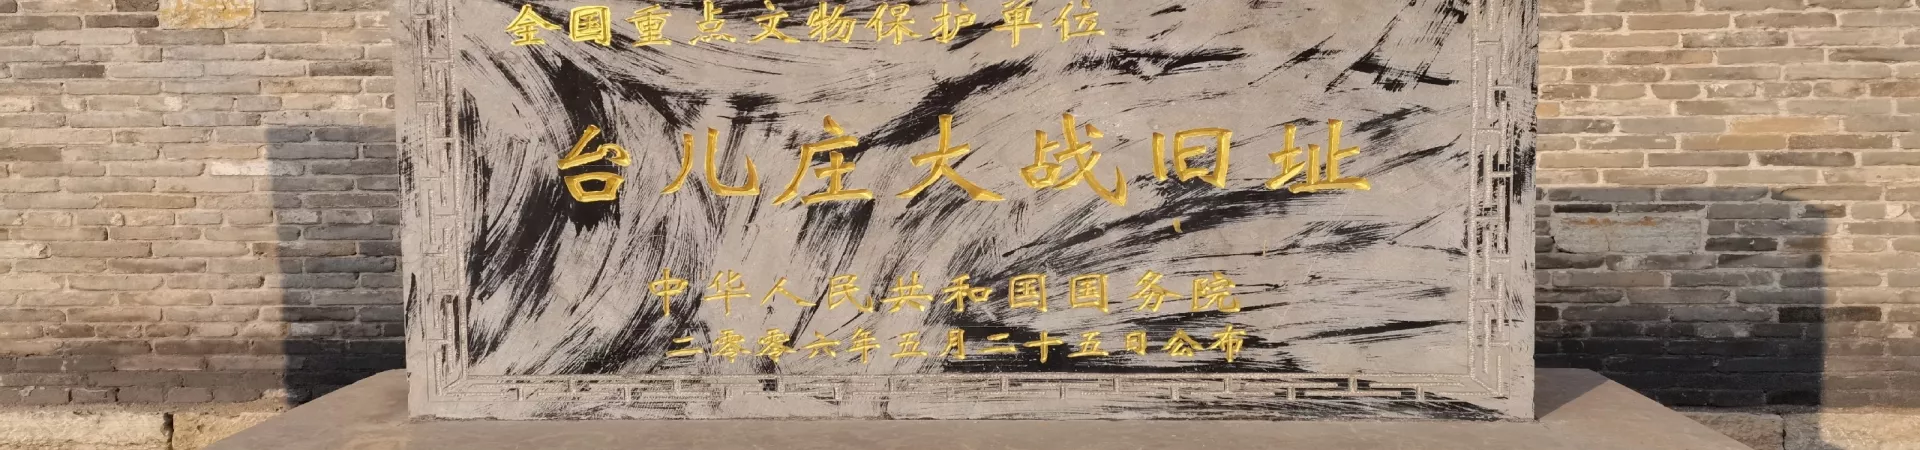 全国重点文物保护单位
台儿庄大战旧址
中华人民共和国国务院
二零零六年五月二十五日公布